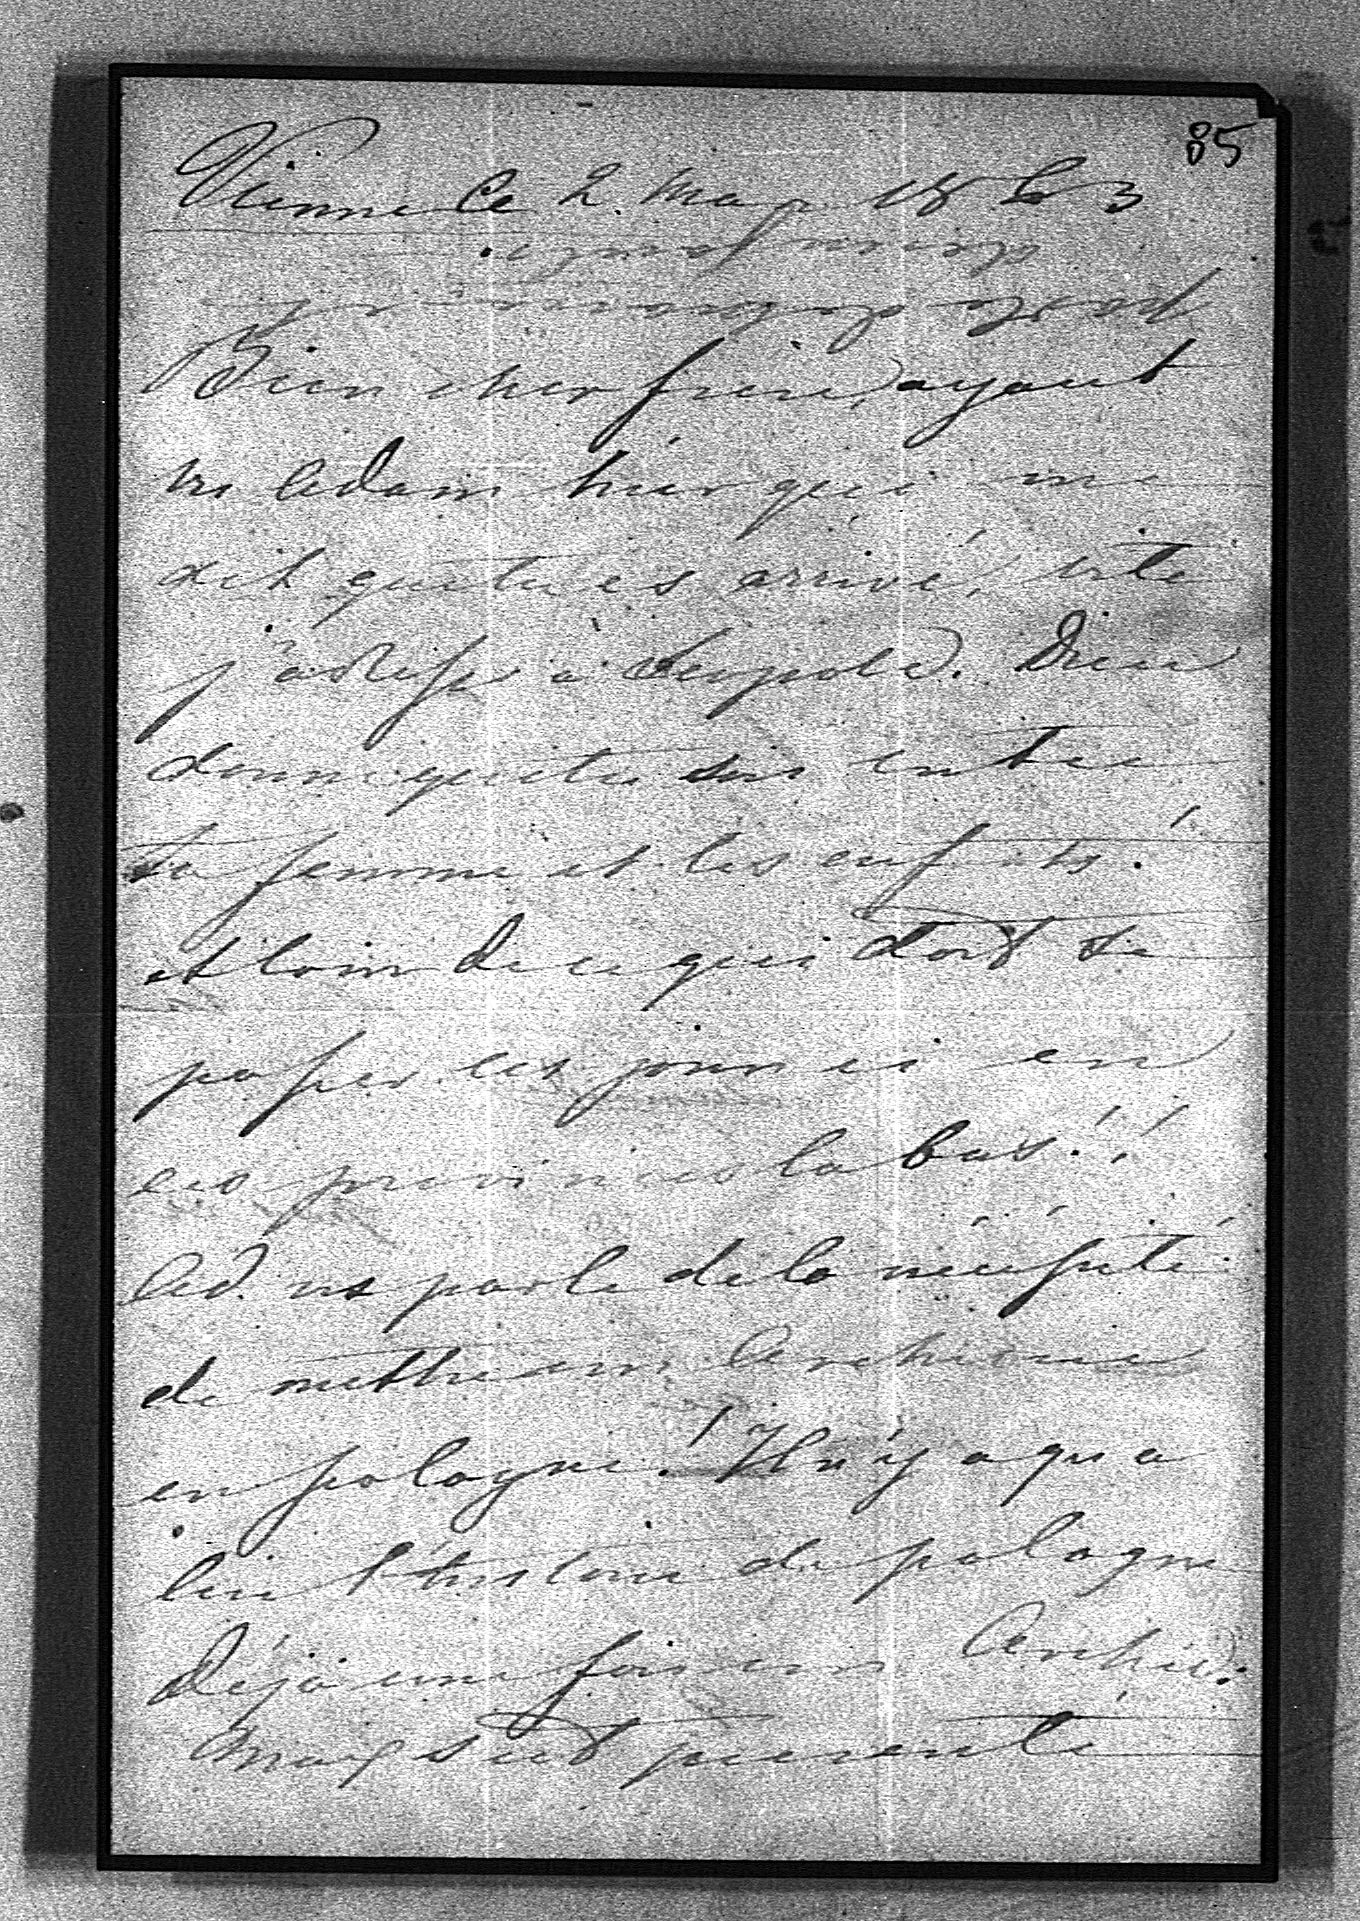 85
Vienne le 2. Mars 1863
Bien cher frère, ayant
vu Adam hier qui me
dit que tu es arrivé, vite
j'adresse à Léopold. Dieu
donne que tu sois entre
ta femme et les enfants!
et loin de ce qui doit se
passer ces jours ci en
ces provinces la bas!!
Ad. ns parle de la nécéssité
de mettre un Archiduc
en pologne! Il n'y a qu a
lire l'histoire de pologne
déjà une fois un Archid:
Max s'est présenté